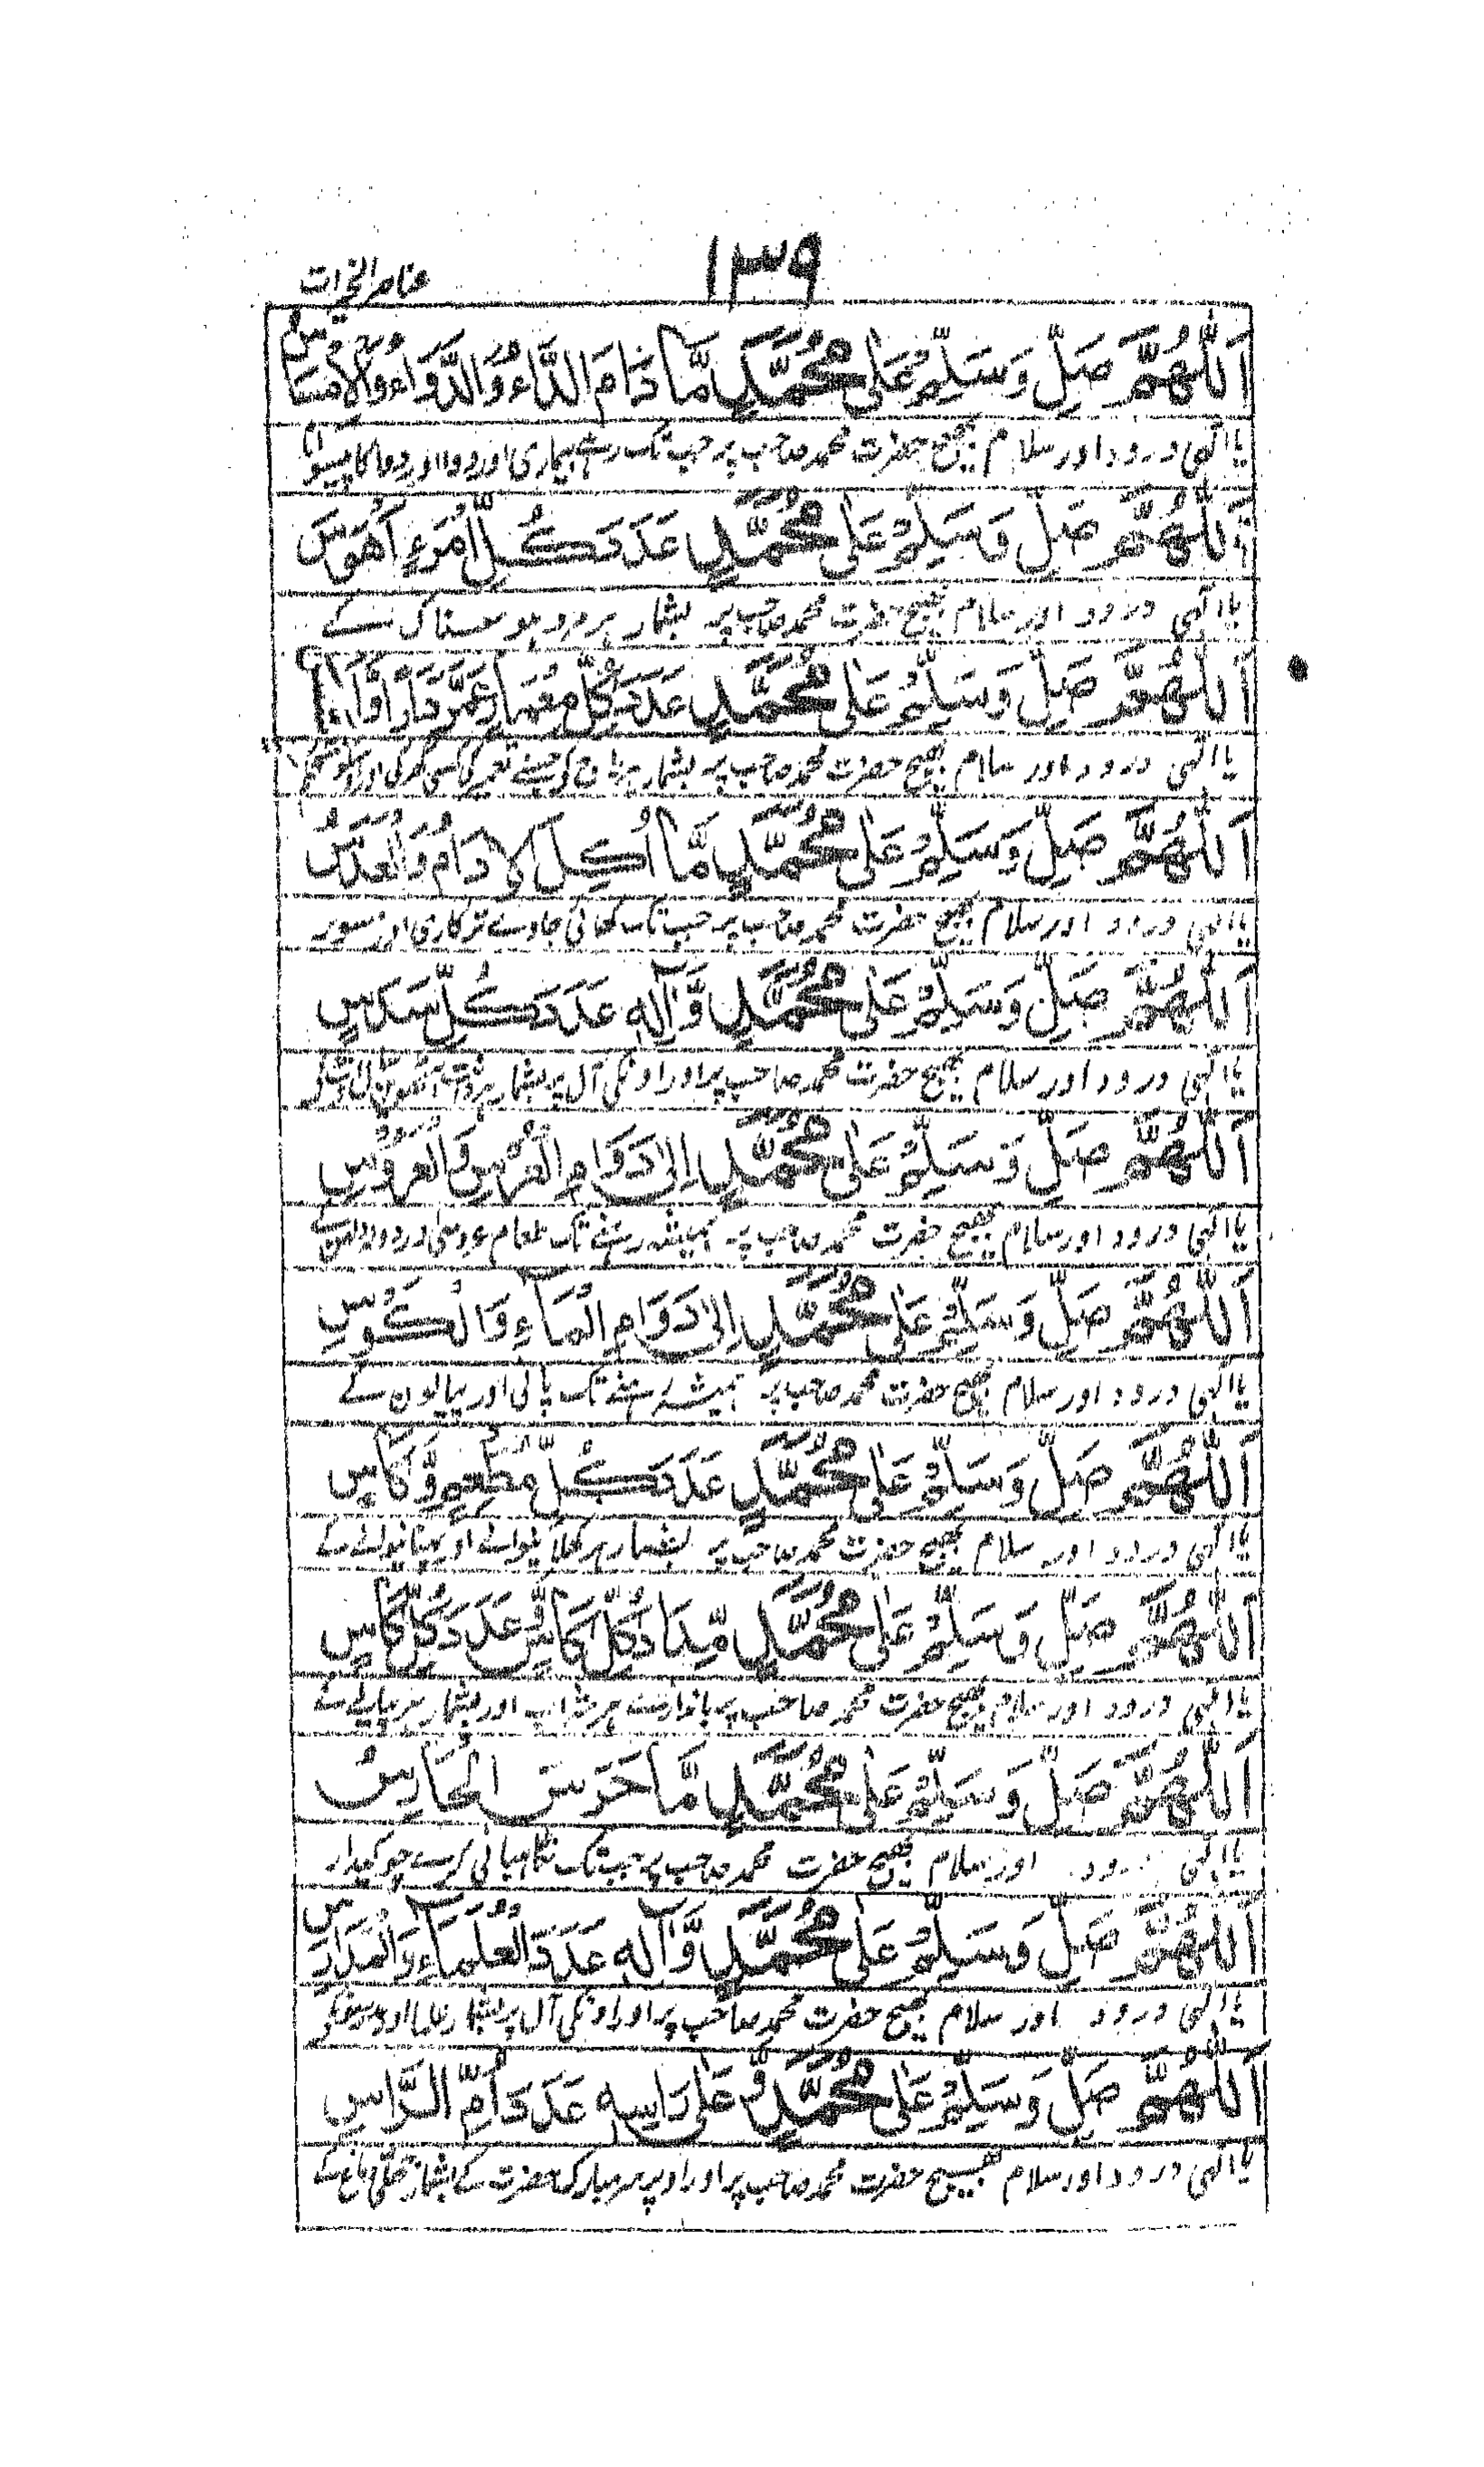 ۱۳۹
عناصر الخیرات
اَللّٰهُمَّ صَلِّ وَسَلِّمْ عَلٰى مُحَمَّدٍ مَّا دَامَ الدَّاءُ وَالدَّوَاءُ وَالْاٰسُ
یا الٰہی درود اور سلام بھیج حضرت محمد صاحب پر جب تک رہے بیماری اور دوا اور
اَللّٰهُمَّ صَلِّ وَسَلِّمْ عَلٰى مُحَمَّدٍ عَدَدَ كُلِّ امْرَءٍ اَهْوَسَ
یا الٰہی درود اور سلام بھیج حضرت محمد صاحب پر بشمار ہر مرد ہوسناک کے
اَللّٰهُمَّ صَلِّ وَسَلِّمْ عَلٰى مُحَمَّدٍ عَدَدَ كُلِّ مِعْمَارٍ عَمَّرَ دَارًا
یا الٰہی درود اور سلام بھیج حضرت محمد صاحب پر بشمار ہر
اَللّٰهُمَّ صَلِّ وَسَلِّمْ عَلٰى مُحَمَّدٍ مَّا اُكِلَ الْاِدَامُ وَالْعَدَسُ
یا الٰہی درود اور سلام بھیج حضرت محمد صاحب پر جب تک کھائی جاوے ترکاری اور مسور
اَللّٰهُمَّ صَلِّ وَسَلِّمْ عَلٰى مُحَمَّدٍ وَّاٰلِهٖ عَدَدَ كُلِّ سَدَسٍ
یا الٰہی درود اور سلام بھیج حضرت محمد صاحب پر اور اونکی آل پر بشمار
اَللّٰهُمَّ صَلِّ وَسَلِّمْ عَلٰى مُحَمَّدٍ اِلٰى دَوَامِ الْعُرْسِ وَالْعَرُوْسِ
یا الٰہی درود اور سلام بھیج حضرت محمد صاحب پر ہمیشہ رہنے تک طعام عروسی
اَللّٰهُمَّ صَلِّ وَسَلِّمْ عَلٰى مُحَمَّدٍ اِلٰى دَوَامِ الْمَآءِ وَالْكُوْسِ
یا الٰہی درود اور سلام بھیج حضرت محمد صاحب پر ہمیشہ رہنے تک پانی اور پیالون کے
اَللّٰهُمَّ صَلِّ وَسَلِّمْ عَلٰى مُحَمَّدٍ عَدَدَ كُلِّ مُطْعِمٍ وَّكَاسٍ
یا الٰہی درود اور سلام بھیج حضرت محمد صاحب پر بشمار ہر کھلانیوالے اور پہنانیوالے کے
اَللّٰهُمَّ صَلِّ وَسَلِّمْ عَلٰى مُحَمَّدٍ مِّدَادَ كُلِّ كَاسٍ وَّعَدَدَ كُلِّ كَاسٍ
یا الٰہی درود اور سلام بھیج حضرت محمد صاحب پر باندازہ ہر شراب اور بشمار ہر پیالے کے
اَللّٰهُمَّ صَلِّ وَسَلِّمْ عَلٰى مُحَمَّدٍ مَّا حَرَسَ الْحَارِسُ
یا الٰہی درود اور سلام بھیج حضرت محمد صاحب پر جب تک نگاہبانی کرے چوکیدار
اَللّٰهُمَّ صَلِّ وَسَلِّمْ عَلٰى مُحَمَّدٍ وَّاٰلِهٖ عَدَدَ الْعُلَمَآءِ وَالْمَدَارِسِ
یا الٰہی درود اور سلام بھیج حضرت محمد صاحب پر اور اونکی آل پر بشمار علما اور مدرسونکے
اَللّٰهُمَّ صَلِّ وَسَلِّمْ عَلٰى مُحَمَّدٍ وَّعَلٰى رَاسِهٖ عَدَدَ اُمِّ الرَّاسِ
یا الٰہی درود اور سلام بھیج حضرت محمد صاحب پر اور اوپر سر مبارک حضرت کے بشمار